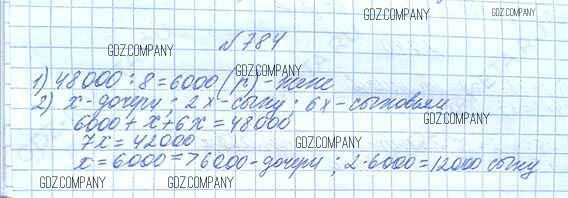 GDZ.COMPANY
№784
GDZ.COMPANY
GDZ.COMPANY
1) 48000 : 8 = 6000 (р) - жене
2) х - дочери ; 2х - сыну ; 6х - сыновьям
GDZ.COMPANY
6000 + х + 6х = 48000
GDZ.COMPANY
7х = 42000
х = 6000 => 6000 - дочери ; 2·6000 = 12000 сыну
GDZ.COMPANY
GDZ.COMPANY
GDZ.COMPANY